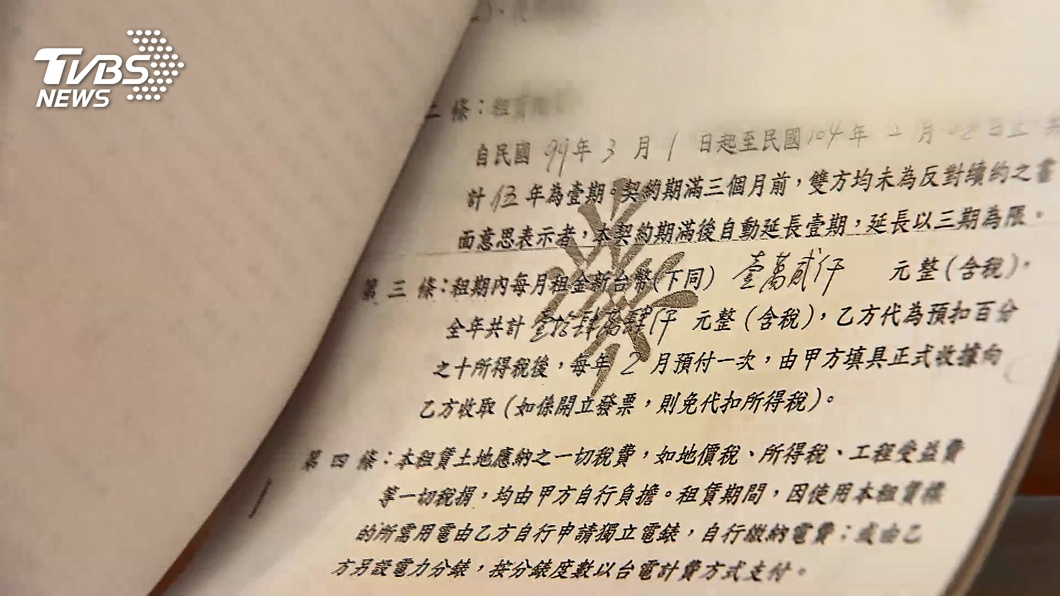 TVBS
NEWS
二 條：租賃期
自民國 99 年 3 月 1 日起至民國 104 年 2 月 28 日止 共
計 伍 年為壹期。契約期滿三個月前，雙方均未為反對續約之書
面意思表示者，本契約期滿後自動延長壹期，延長以三期為限。
第 三 條：租期內每月租金新台幣(下同) 壹萬貳仟 元整(含稅)。
全年共計 壹拾肆萬肆仟 元整(含稅)，乙方代為預扣百分
之十所得稅後，每年 2 月預付一次，由甲方填具正式收據向
乙方收取(如係開立發票，則免代扣所得稅)。
第 四 條：本租賃土地應納之一切稅費，如地價稅、所得稅、工程受益費
等一切稅捐，均由甲方自行負擔。租賃期間，因使用本租賃標
的所需用電由乙方自行申請獨立電錶，自行繳納電費；或由乙
方另設電力分錶，按分錶度數以台電計費方式支付。